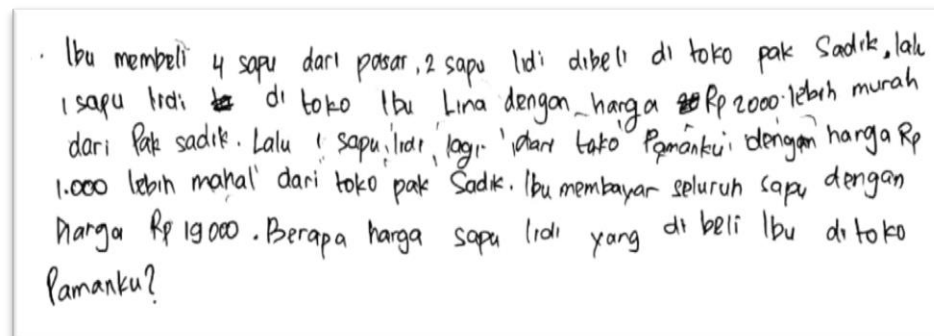 Ibu membeli 4 sapu dari pasar, 2 sapu lidi dibeli di toko pak Sadik, lalu
1 sapu lidi di toko Ibu Lina dengan harga Rp 2000 lebih murah
dari Pak sadik. Lalu 1 sapu lidi lagi dari toko Pamanku dengan harga Rp
1.000 lebih mahal dari toko pak Sadik. Ibu membayar seluruh sapu dengan
harga Rp 19000. Berapa harga sapu lidi yang di beli Ibu di toko
Pamanku?